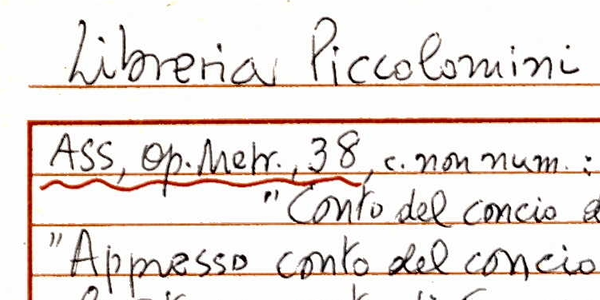 Libreria Piccolomini
ASS, Op. Metr., 38, c. non num.:
"Conto del concio
"Appresso conto del concio